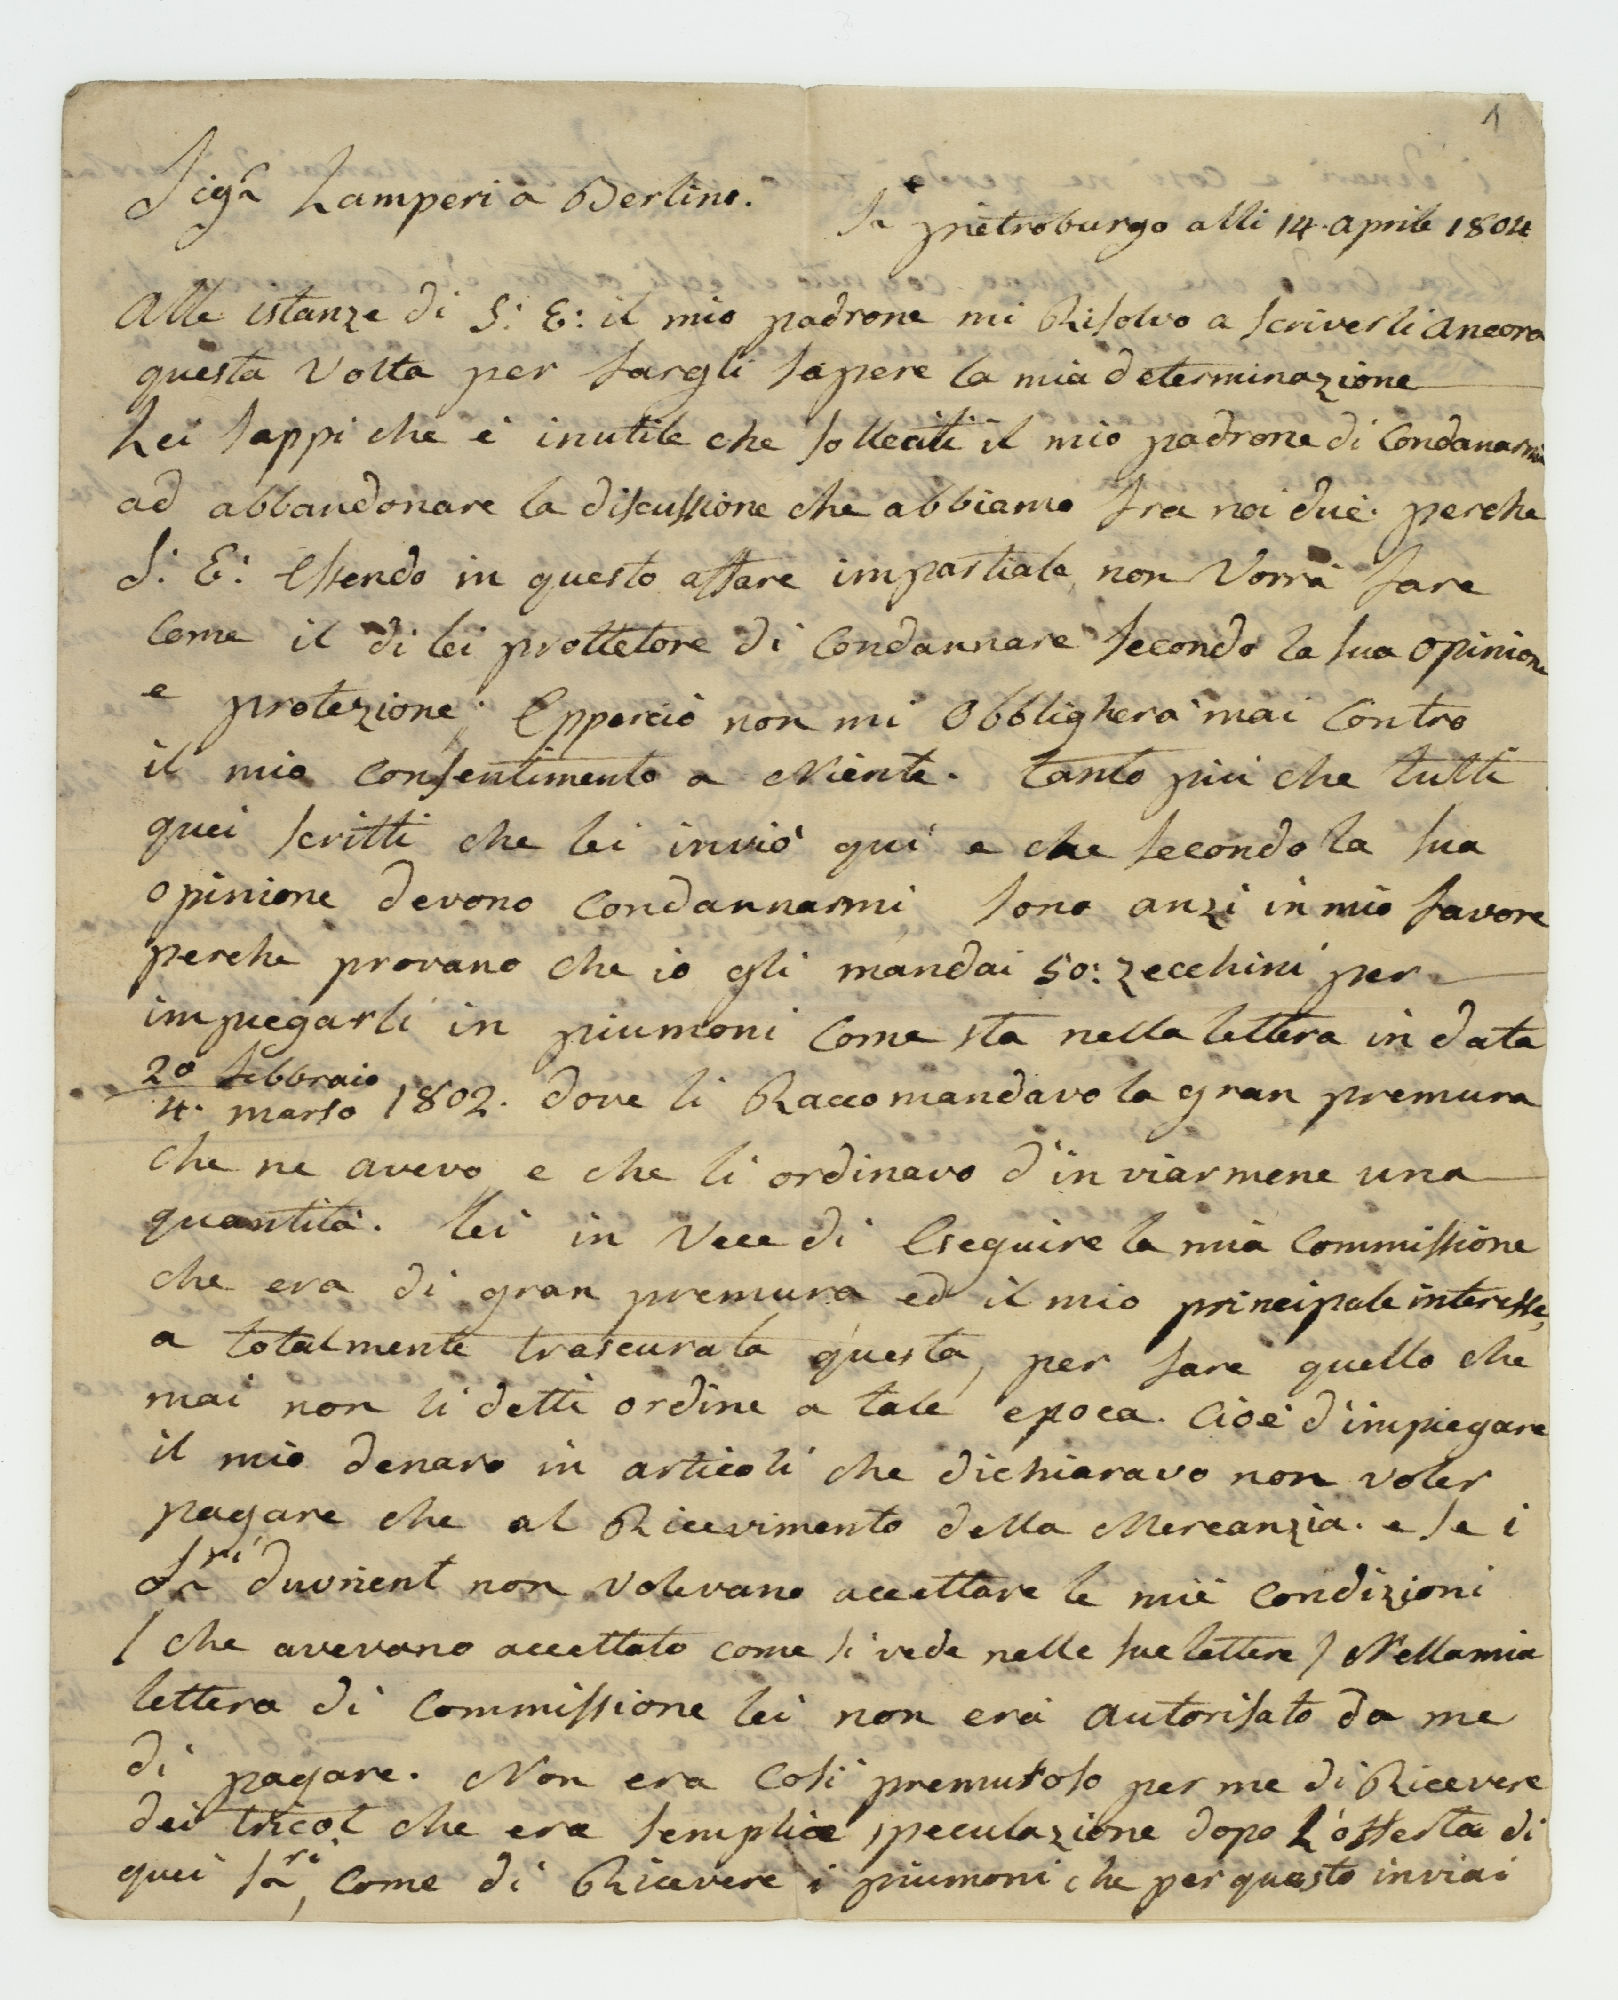 1
Sigr Lamperi a Berlino.
Sn pietroburgo alli 14. aprile 1804
Alle istanze di S: E: il mio padrone mi Risolvo a scriverli ancora
questa Volta per fargli sapere la mia determinazione
Lei sappi che è inutile che solleciti il mio padrone di Condanarmi
ad abbandonare la discussione che abbiamo fra noi due: perche
S: E: Essendo in questo affare impartiale, non Vorrà fare
Come il di lei prottetore di Condannare secondo la sua Opinione
e protezione; Epperciò non mi Obblighera mai Contro
il mio Consentimento a Niente. tanto più che tutti
quei scritti che lei inviò qui e che secondo la sua
opinione devono Condannarmi, sono anzi in mio favore
perche provano che io gli mandai 50: zecchini per
impiegarli in piumoni Come sta nella lettera in data
20 febbraio
4. marso 1802. dove li Raccomandavo la gran premura
che ne avevo, e che li ordinavo d'inviarmene una
quantità. Lei in Vece di Eseguire la mia Commissione
che era di gran premura ed il mio principale interesse,
a totalmente trascurata questa, per fare quello che
mai non li detti ordine a tale epoca. Cioè d'impiegare
il mio denaro in articoli che dichiaravo non voler
pagare che al Ricevimento della Mercanzia. e se i
Sri duvrient non volevano accettare le mie Condizioni
/ che avevano accettato come si vede nelle sue lettere / Nella mia
lettera di Commissione lei non era autorisato da me
di pagare. Non era Cosi premuroso per me di Ricevere
dei tricot che era semplice speculazione dopo L'offerta di
quei Sri, Come di Ricevere i piumoni che per questo inviai